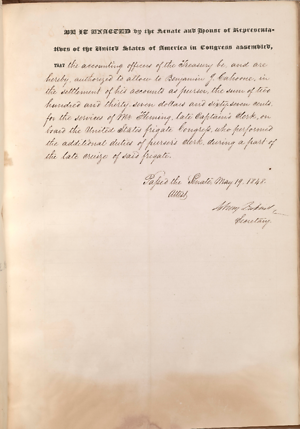 BE IT ENACTED by the Senate and House of Representa-
tives of the United States of America in Congress assembled,
THAT the accounting officers of the Treasury be, and are
hereby authorized to allow to Benjamin J. Cahoone, in
the settlement of his accounts as purser, the sum of two
hundred and thirty seven dollars and sixty seven cents,
for the services of Mr Fleming, late Captain's Clerk, on
board the United States frigate Congress, who performed
the additional duties of purser's clerk, during a part of
the late cruize of said frigate.
Passed the Senate May 19. 1848.
Attest,
Secretary